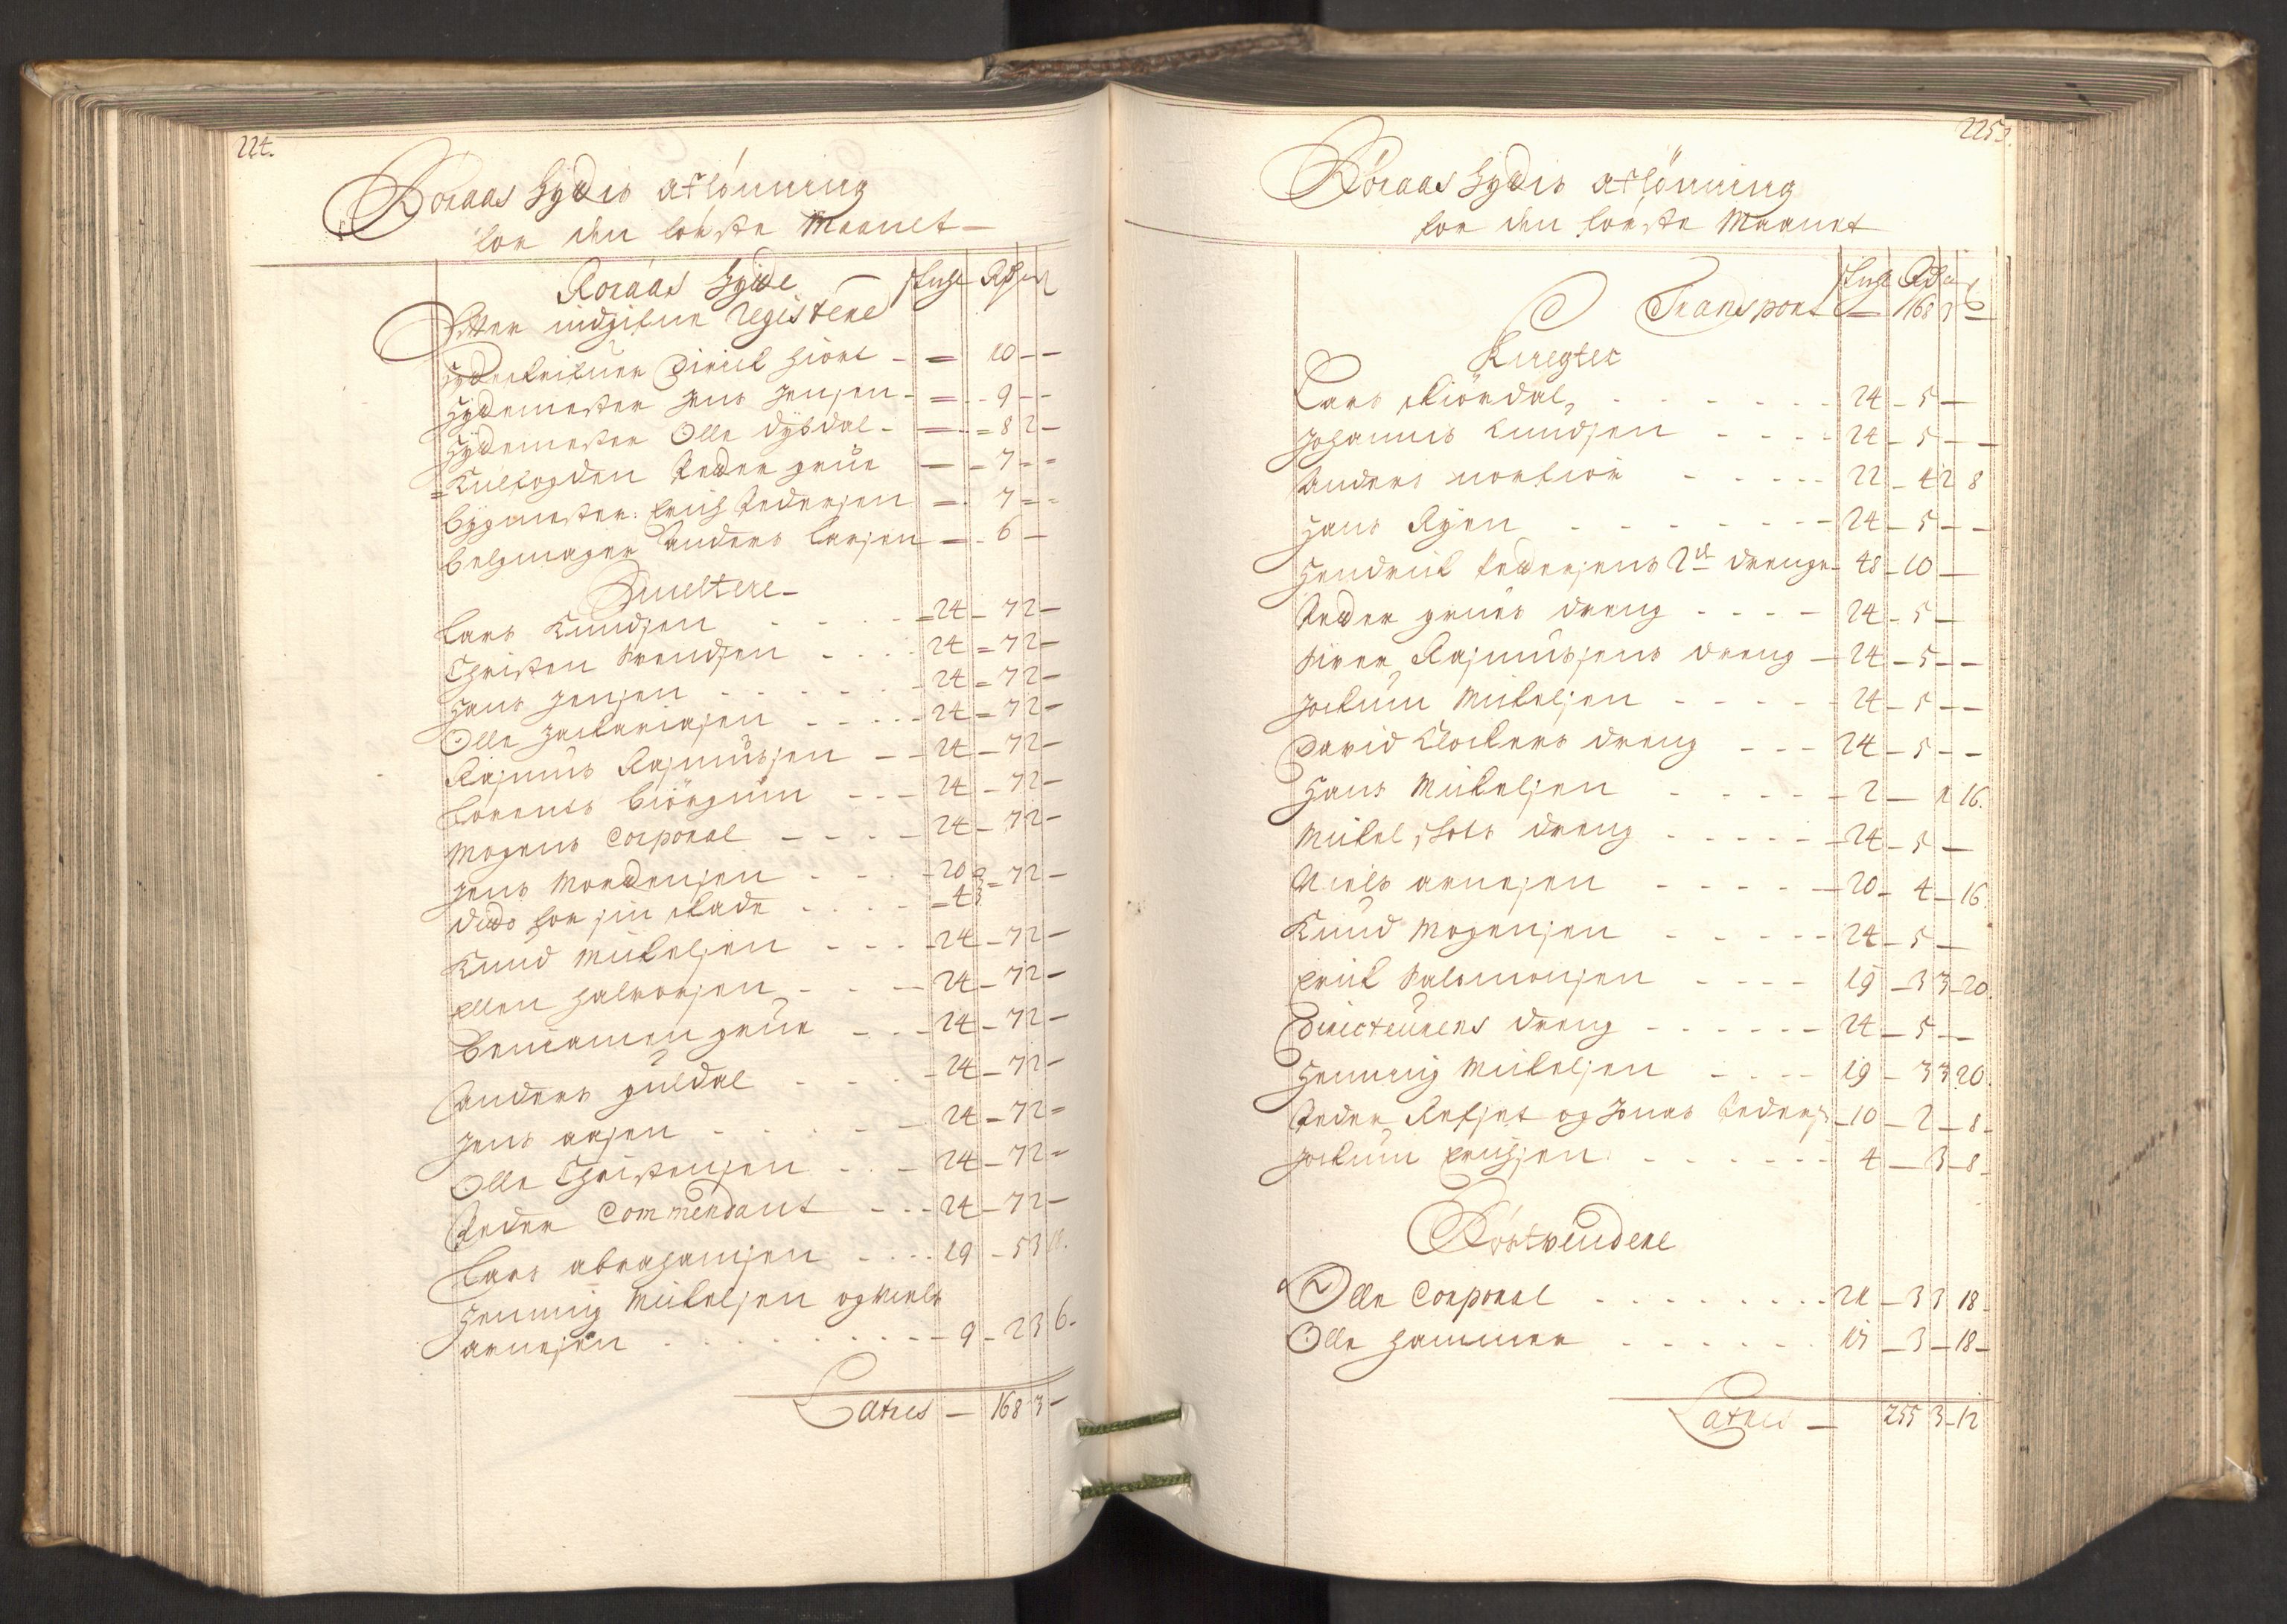 224.
Röraas Hydis aflönning
for den förste Maanet
Röraas Hyde Rdr
Efter indgifne Registere
Hydeskrifver Dirick Hiort - = 10 - -
Hydemester Jens Jensen - = - 9 - -
Hydemester Olle Dybdal - = 8 2 -
Kulfogden Peder grue - 7 - -
bygmester Erich Pedersen = 7 - -
belgmager Anders Larsen - 6 -
Smeltere
Lars Knudsen - 24 - 7 2 -
Christen Svendsen - 24 = 7 2 -
Hans Jensen - 24 = 7 2 -
Olle Zackariasen - 24 = 7 2 -
Rasmus Rasmussen - 24 - 7 2 -
Lorents Biörgum - 24 - 7 2 -
Mogens Corporal - 24 - 7 2 -
Jens Mordensen - 20
dito for sin skade - 4 = 7 2 -
Knud Mickelsen - 24 - 7 2 -
Ellen Halvorsen - 24 - 7 2 -
Beniamen grue - 24 - 7 2 -
Anders guldal - 24 - 7 2 -
Jens aasen - 24 - 7 2 -
Olle Christensen - 24 - 7 2 -
Peder Commendant - 24 - 7 2 -
Lars abrahamsen - 19 - 5 3
Henning Mickelsen og Niels
arnesen - 9 - 2 3 6 -
Latus - 168 3 -
225.
Röraas Hydis aflönning
for den förste Maanet
Rdr
Transport - 168 3 -
Knegter
Lars Skiördal - 24 - 5 -
Johannis Knudsen - 24 - 5 - -
Anders norkiör - 22 - 4 2 8
Hans Ryen - 24 - 5 - -
Hendrick Pedersens 2de drenge - 48 - 10 -
Peder grues dreng - 24 - 5 -
Siver Rasmussens dreng - 24 - 5 - -
Jockum Mickelsen - 24 - 5 - -
David Klockers dreng - 24 - 5 - -
Hans Mickelsen - 2 - 1 16.
Mickel Skots dreng - 24 - 5 -
Niels arnesen - 20 - 4 - 16.
Knud Mogensen - 24 - 5 -
Erick Salomonsen - 19 - 3 3 20.
Directeurens dreng - 24 - 5 -
Henning Mickelsen - 19 - 3 3 20.
Peder Refset og Jonas Peders - 10 - 2 - 8 -
Jockum Erichsen - 4 - 3 - 8 -
Röstvendere
Olle Corporal - 21 - 3 3 18 -
Olle Hammer - - 3 - 18 -
Latus - 255 3 - 12